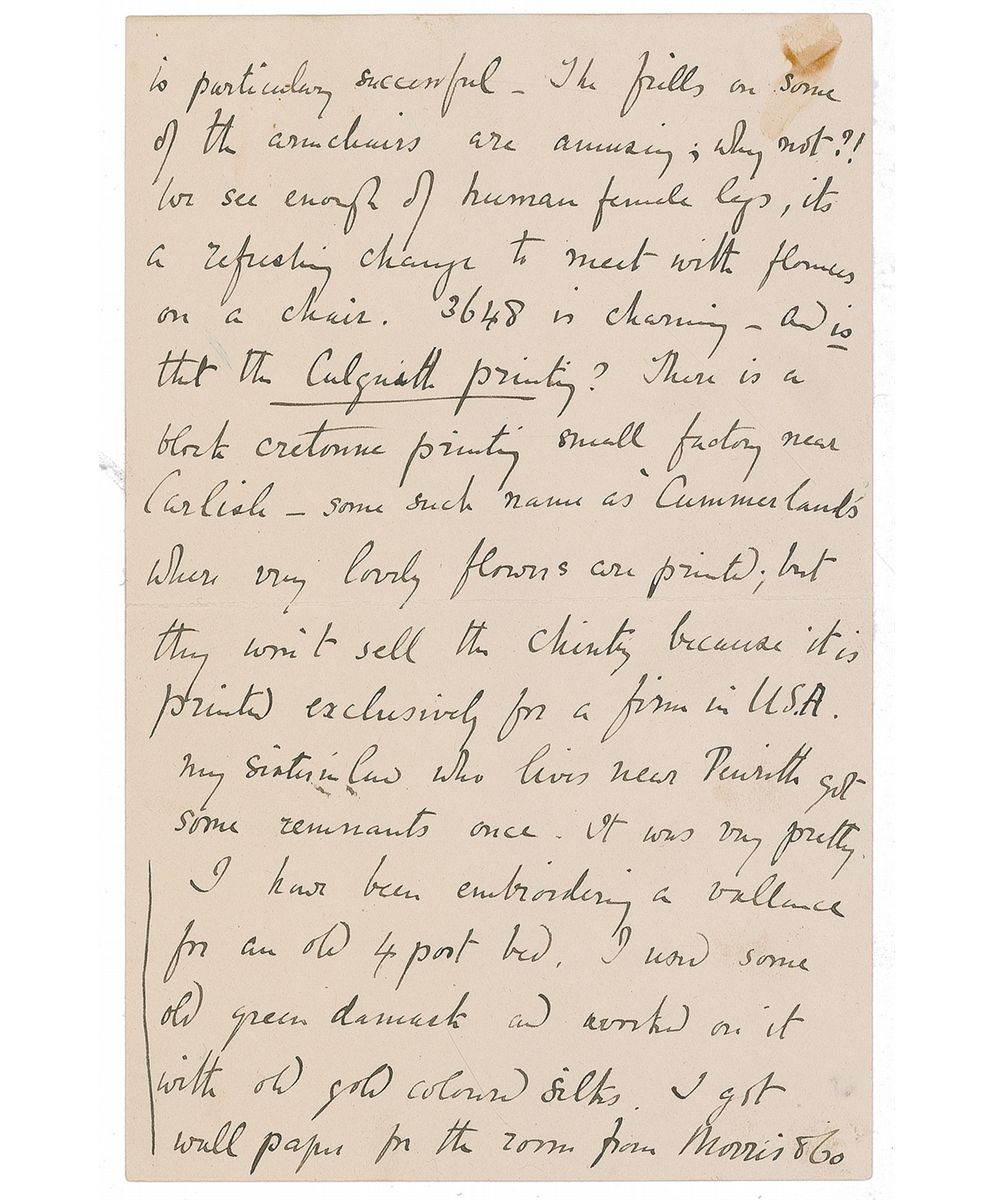 is particulary successful - The frills on some
of the armchairs are amusing; why not?!
We see enough of human female legs, its
a refreshing change to meet with flounces
on a chair. 3648 is charming - and is
that the Culgaith printing? There is a
block cretonne printing small factory near
Carlisle - some such name as "Cummerlands
where very lovely flowers are printed; but
they won't sell the chintz because it is
printed exclusively for a firm in U.S.A.
my sister in law who lives near Penrith got
some remnants once. It was very pretty.
I have been embroidering a vallance
for an old 4 post bed. I used some
old green damask and worked on it
with old gold coloured silks. I got
wall paper for the room from Morris & Co